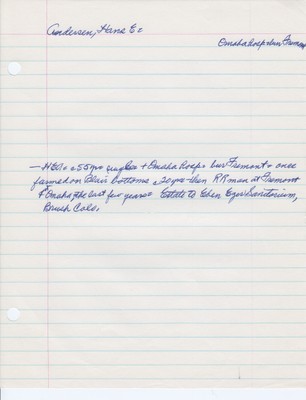 Andersen, Hans E.
Omaha Hosp bur Fremont
— HEA. a 55 yrs single + Omaha Hosp. bur Fremont. once
farmed on Blair bottoms a 20 yrs then RR man at Fremont
& Omaha the last few years. Estate to Eben Ezer Sanitorium,
Brush Colo.